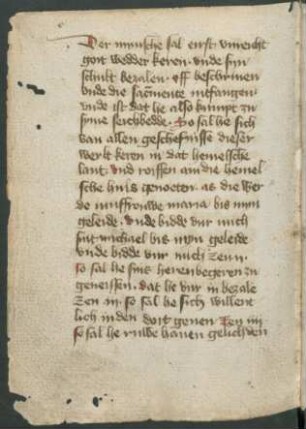 Der mynsche sal eirst vnrecht
goit wedder keren · vnde syn
schult bezalen · off beschriuen
vnde die sacramente intfangen ·
vnde ist dat he also kumpt zu
syme seichbedde · So sal he sich
van allen geschefnisse dieser
werlt keren in dat hemelsche
lant · vnd roiffen an die hemel
sche huis genoeten · as die wer
de iunffrouwe maria bis myn
geleide · vnde bidde vur mich
sint michael bis myn geleide
vnde bidde vur mich Zem ij
so sal he sins heren begeren zu
geneissen · dat he vur in bezale
Zem iij so sal he sich willent
lich in den doit geuen Zem iiij
so sal he ruwe hauen